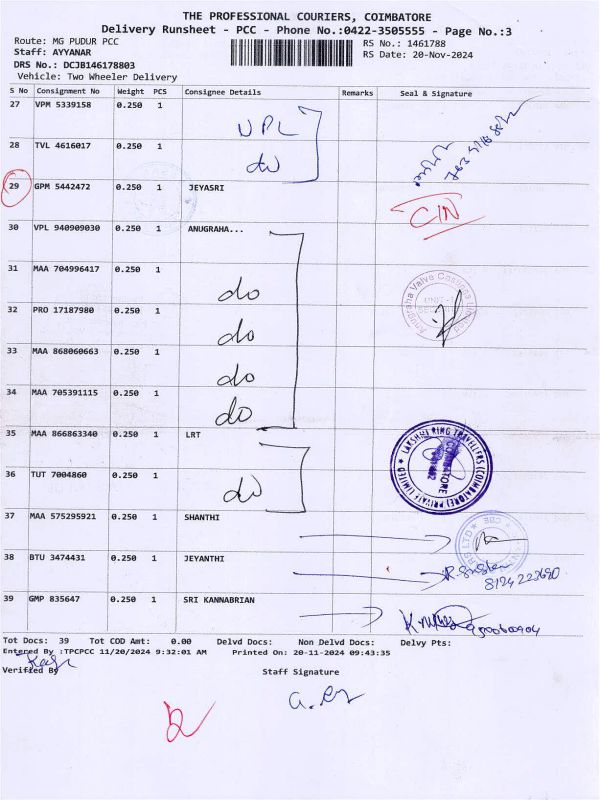 THE PROFESSIONAL COURIERS, COIMBATORE
Delivery Runsheet - PCC - Phone No.:0422-3505555 - Page No.:3
Route: MG PUDUR PCC RS No.: 1461788
Staff: AYYANAR RS Date: 20-Nov-2024
DRS No.: DCJB146178803
Vehicle: Two Wheeler Delivery
S No Consignment No Weight PCS Consignee Details Remarks Seal & Signature
27 VPM 5339158 0.250 1 VPL
28 TVL 4616017 0.250 1 do
29 GPM 5442472 0.250 1 JEYASRI CIN
30 VPL 940909030 0.250 1 ANUGRAHA...
31 MAA 704996417 0.250 1 do
32 PRO 17187980 0.250 1 do
33 MAA 868060663 0.250 1 do
34 MAA 705391115 0.250 1 do
35 MAA 866863340 0.250 1 LRT
36 TUT 7004860 0.250 1 do
37 MAA 575295921 0.250 1 SHANTHI
38 BTU 3474431 0.250 1 JEYANTHI
39 GMP 835647 0.250 1 SRI KANNABRIAN
Tot Docs: 39 Tot COD Amt: 0.00 Delvd Docs: Non Delvd Docs: Delvy Pts:
Entered By :TPCPCC 11/20/2024 9:32:01 AM Printed On: 20-11-2024 09:43:35
Verified By Staff Signature